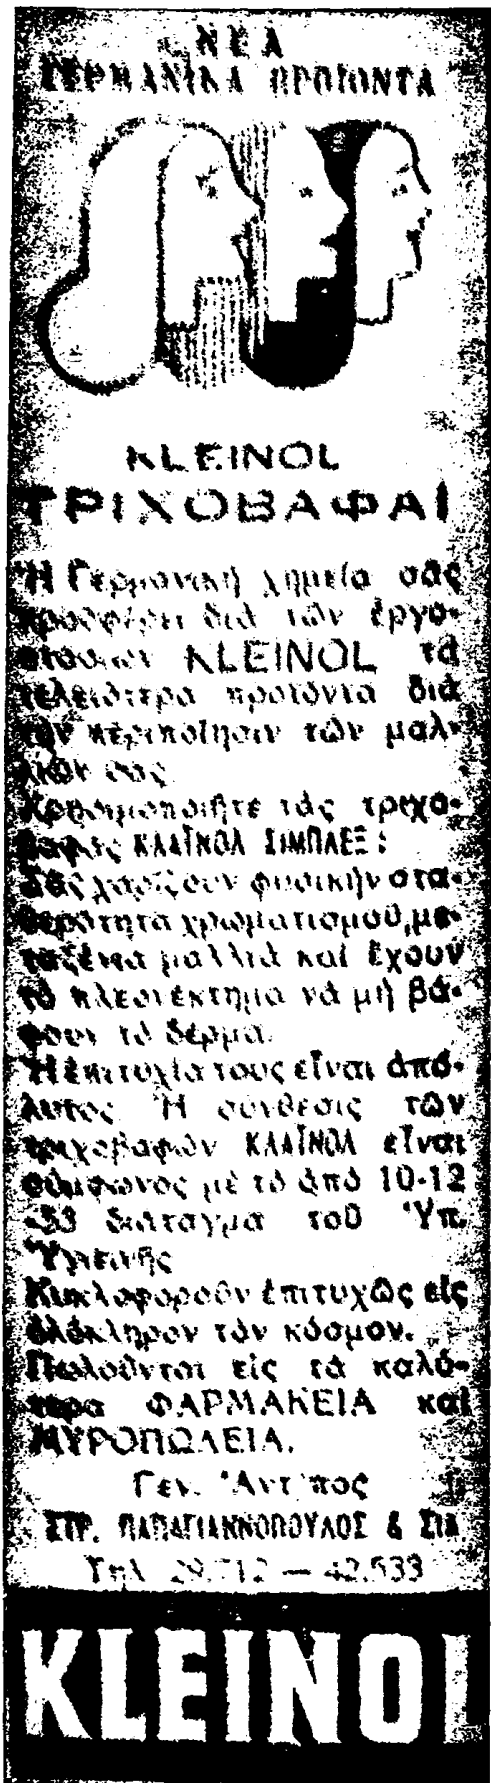 ΝΕΑ
ΓΕΡΜΑΝΙΚΑ ΠΡΟΪΟΝΤΑ
KLEINOL
ΤΡΙΧΟΒΑΦΑΙ
Ἡ Γερμανική χημεία σᾶς
προσφέρει διά τῶν ἐργο-
στασίων KLEINOL τά
τελειότερα προϊόντα διά
τήν περιποίησιν τῶν μαλ-
λιῶν σας.
Χρησιμοποιῆτε τάς τριχο-
βαφάς ΚΛΑΪΝΟΛ ΣΙΜΠΛΕΞ:
Σᾶς χαρίζουν φυσικήν στα-
θερότητα χρωματισμοῦ, με-
ταξένια μαλλιά καί ἔχουν
τό πλεονέκτημα νά μή βά-
φουν τό δέρμα.
Ἡ ἐπιτυχία τους εἶναι ἀπό-
λυτος. Ἡ σύνθεσις τῶν
τριχοβαφῶν ΚΛΑΪΝΟΛ εἶναι
σύμφωνος μέ τό ἀπό 10-12
-53 διάταγμα τοῦ Ὑπ.
Ὑγιεινῆς
Κυκλοφοροῦν ἐπιτυχῶς εἰς
ὁλόκληρον τόν κόσμον.
Πωλοῦνται εἰς τά καλύ-
τερα ΦΑΡΜΑΚΕΙΑ καί
ΜΥΡΟΠΩΛΕΙΑ.
Γεν. Ἀντ)πος
ΣΤΡ. ΠΑΠΑΓΙΑΝΝΟΠΟΥΛΟΣ & ΣΙΑ
Τηλ. 29.712 — 42.533
KLEINOL